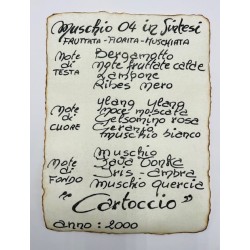 Muschio 04 in Sintesi
FRUTTATA - FIORITA - MUSCHIATA
Note di TESTA
Bergamotto
note fruttate calde
Lampone
Ribes nero
Note di CUORE
ylang ylang
noce moscata
Gelsomino rosa
Geranio
muschio bianco
Note di FONDO
Muschio
Fava Tonka
Iris - ambra
muschio quercia
"Cartoccio"
anno: 2000